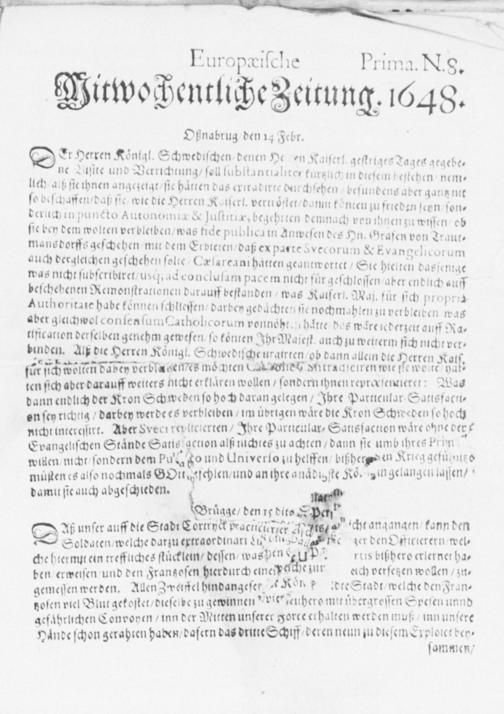 Europæische Prima. N.8.
Mitwochentliche Zeitung. 1648.
Oßnabrug den 14 Febr.
DEr Herren Königl. Schwedischen / denen Kaiserl. gestriges Tages gegebe-
ne Visite und Verrichtung / soll substantialiter kürtzlich in diesem bestehen / nem-
lich / alß sie ihnen angezeigt / sie hätten das extradirte durchsehen / befundens aber gantz nit
so beschaffen / daß sie / wie die Herren Kaiserl. vertröstet / damit können zu frieden seyn / son-
derlich in puncto Autonomiæ & Justitiæ, begehrten demnach von ihnen zu wissen / ob
sie bey dem wolten verbleiben / was fide publica in Anwesen des Hn. Grafen von Traut-
mansdorffs geschehen / mit dem Erbieten / daß ex parte Svecorum & Evangelicorum
auch dergleichen geschehen solte / Cæsareani hätten geantwortet / Sie hielten dasjenige
was nicht subscribiret / usq; ad conclusam pacem nicht für geschlossen / aber endlich auff
beschehenen Remonstrationen darauff bestanden / was Kaiserl. Maj. für sich propria
Authoritate habe können schliessen / darbey gedächten sie nochmahlen zu verbleiben / was
aber gleichwol consensum Catholicorum vonnöhten hätte / das wäre jederzeit auff Ra-
tification derselben genehm gewesen / so können Ihr Majest. auch zu weiterm sich nicht ver-
binden. Alß die Herren Königl. Schwedische urgirten / ob dann allein die Herren Kais.
für sich wolten dabey verbleiben / es möchten wie sie wolte / hät-
ten sich aber darauff weiters nicht erklären wollen / sondern ihnen repræsentieret: Was
dann endlich der Kron Schweden so hoch daran gelegen / Ihre Particular-Satisfacti-
on sey richtig / darbey werde es verbleiben / im übrigen wäre die Kron Schweden so hoch
nicht interessirt. Aber Sveci replicierten / Ihre Particular-Satisfaction wäre ohne der
Evangelischen Stände alß nichtes zu achten / dann sie umb ihres
willen nicht / sondern dem und Universo zu helffen / bißher den Krieg geführt
müsten es also nochmals GOtt befehlen / und an ihre gnädigste gelangen lassen /
damit sie auch abgeschieden.
Brügge / den 15 dito
DAß unser auff die Stadt Cortryck practicierter angangen / kann den
Soldaten / welche darzu extraordinari der Officierern / wel-
che hiermit ein treffliches stücklein / dessen / was bißhero erlernet ha-
ben / erweisen / und den Frantzosen hierdurch eine versetzen wollen / zu-
gemessen werden. Allen Zweiffel hindangesetzt Stadt / welche den Fran-
tzosen viel Blut gekostet / dieselbe zu gewinnen mit übergrossen Spesen unnd
gefährlichen Convoyen / inn der Mitten unserer Force erhalten werden muß / inn unsere
Hände schon gerahten haben / dafern das dritte Schiff / deren neun zu diesem Exploict bey-
sammen /